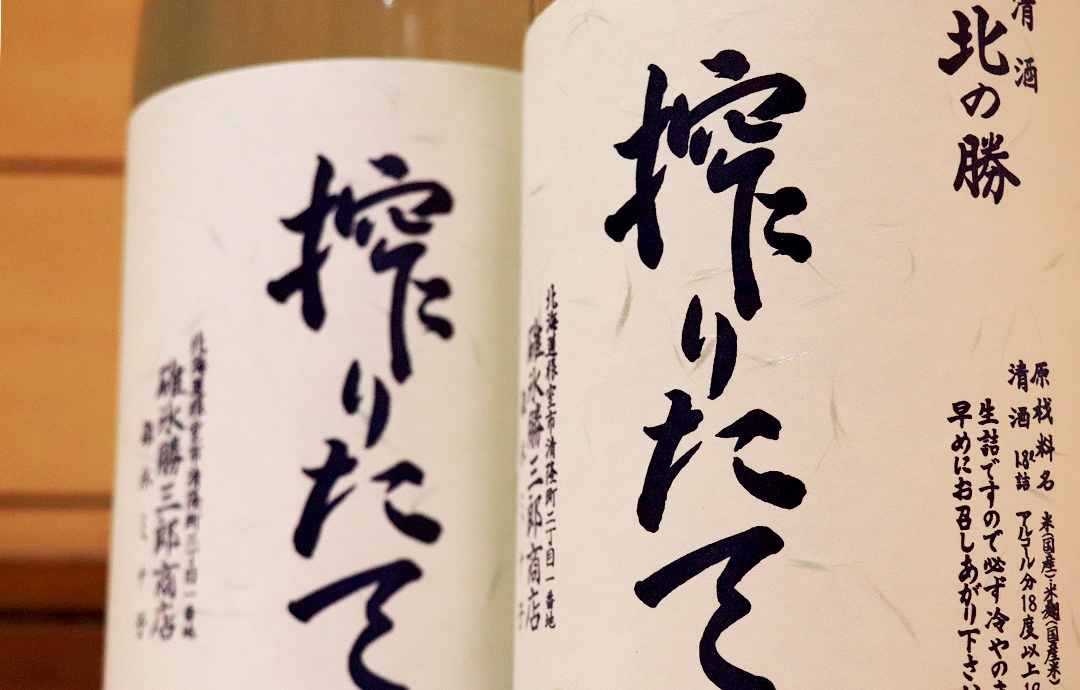 清酒
北の勝
搾りたて
原材料名 米(国産)・米麹(国産米)
清酒 1.8ℓ詰 アルコール分18度以上19
生詰ですので必ず冷やの
早めにお召しあがり下さい
北海道根室市清隆町二丁目一番地
碓氷勝三郎商店
搾りたて
北海道根室市清隆町二丁目一番地
碓氷勝三郎商店